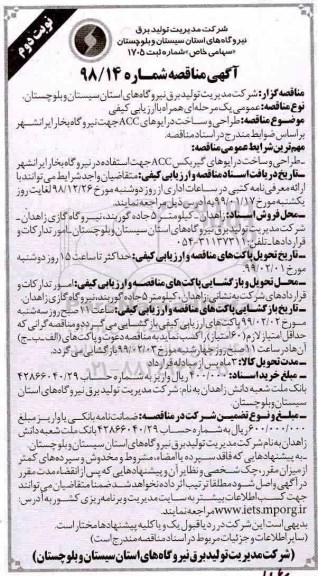 نوبت دوم
شرکت مدیریت تولید برق
نیروگاه‌های استان سیستان و بلوچستان
«سهامی خاص» شماره ثبت ۱۷۰۵
آگهی مناقصه شماره ۹۸/۱۴
مناقصه گزار: شرکت مدیریت تولید برق نیروگاه‌های استان سیستان و بلوچستان.
نوع مناقصه: عمومی یک مرحله‌ای همراه با ارزیابی کیفی
موضوع مناقصه: طراحی و ساخت درایوهای ACC جهت نیروگاه بخار ایرانشهر
براساس ضوابط مندرج در اسناد مناقصه.
مهم‌ترین شرایط عمومی مناقصه:
-طراحی و ساخت درایوهای گیربکس ACC جهت استفاده در نیروگاه بخار ایرانشهر
-تاریخ دریافت اسناد مناقصه و ارزیابی کیفی: متقاضیان واجد شرایط می‌توانند با
ارائه معرفی‌نامه کتبی در ساعات اداری از روز دوشنبه مورخ ۹۸/۱۲/۲۶ لغایت روز
یکشنبه مورخ ۹۹/۰۱/۱۷ به آدرس ذیل مراجعه نمایند.
-محل فروش اسناد: زاهدان- کیلومتر ۵ جاده گوربند، نیروگاه گازی زاهدان-
شرکت مدیریت تولید برق نیروگاه‌های استان سیستان و بلوچستان- امور تدارکات و
قراردادها- تلفن: ۳۱۱۳۷۳۱۱-۰۵۴
-تاریخ تحویل پاکت‌های مناقصه و ارزیابی کیفی: حداکثر تا ساعت ۱۵ روز دوشنبه
مورخ ۹۹/۰۲/۰۱.
-محل تحویل و بازگشایی پاکت‌های مناقصه و ارزیابی کیفی: امور تدارکات و
قراردادهای شرکت به نشانی: زاهدان، کیلومتر ۵ جاده گوربند، نیروگاه گازی زاهدان.
-تاریخ بازگشایی پاکت‌های مناقصه و ارزیابی کیفی: ساعت ۱۱ صبح روز سه‌شنبه
مورخ ۹۹/۰۲/۰۲ پاکت‌های ارزیابی کیفی بازگشایی می‌گردد و مناقصه‌گرانی که
حداقل امتیاز لازم (۶۰ امتیاز) را کسب نمایند به مناقصه دعوت و پاکت‌های (الف-ب-ج)
آن‌ها در ساعت ۱۱ صبح روز چهارشنبه مورخ ۹۹/۰۲/۰۳ بازگشایی می‌گردد.
-مدت تحویل کالا: ۳ ماه پس از مبادله قرارداد
-مبلغ خرید اسناد: ۴۰۰/۰۰۰ ریال واریز به شماره حساب ۴۲۸۶۶۰۴۰/۲۹
بانک ملت شعبه دانش زاهدان به نام: شرکت مدیریت تولید برق نیروگاه‌های استان
سیستان و بلوچستان
-مبلغ و نوع تضمین شرکت در مناقصه: ضمانت‌نامه بانکی یا واریز مبلغ
۶۰۰/۰۰۰/۰۰۰ ریال به شماره حساب ۴۲۸۶۶۰۴۰/۲۹ بانک ملت شعبه دانش
زاهدان به نام شرکت مدیریت تولید برق نیروگاه‌های استان سیستان و بلوچستان
-به پیشنهادهایی که فاقد سپرده یا امضاء، مشروط و مخدوش و سپرده‌های کمتر
از میزان مقرر، چک شخصی و نظایر آن و پیشنهادهایی که پس از انقضاء مدت مقرر
در آگهی واصل شود مطلقا ترتیب اثر داده نخواهد شد ضمنا متقاضیان می‌توانند
جهت کسب اطلاعات بیشتر به سایت مدیریت و برنامه‌ریزی کشور به آدرس:
www.iets.mporg.ir مراجعه نمایند.
بدیهی است این شرکت در رد یا قبول یک و یا کلیه پیشنهادها مختار است.
(سایر اطلاعات و جزئیات مربوط در اسناد مناقصه مندرج است)
(شرکت مدیریت تولید برق نیروگاه‌های استان سیستان و بلوچستان)